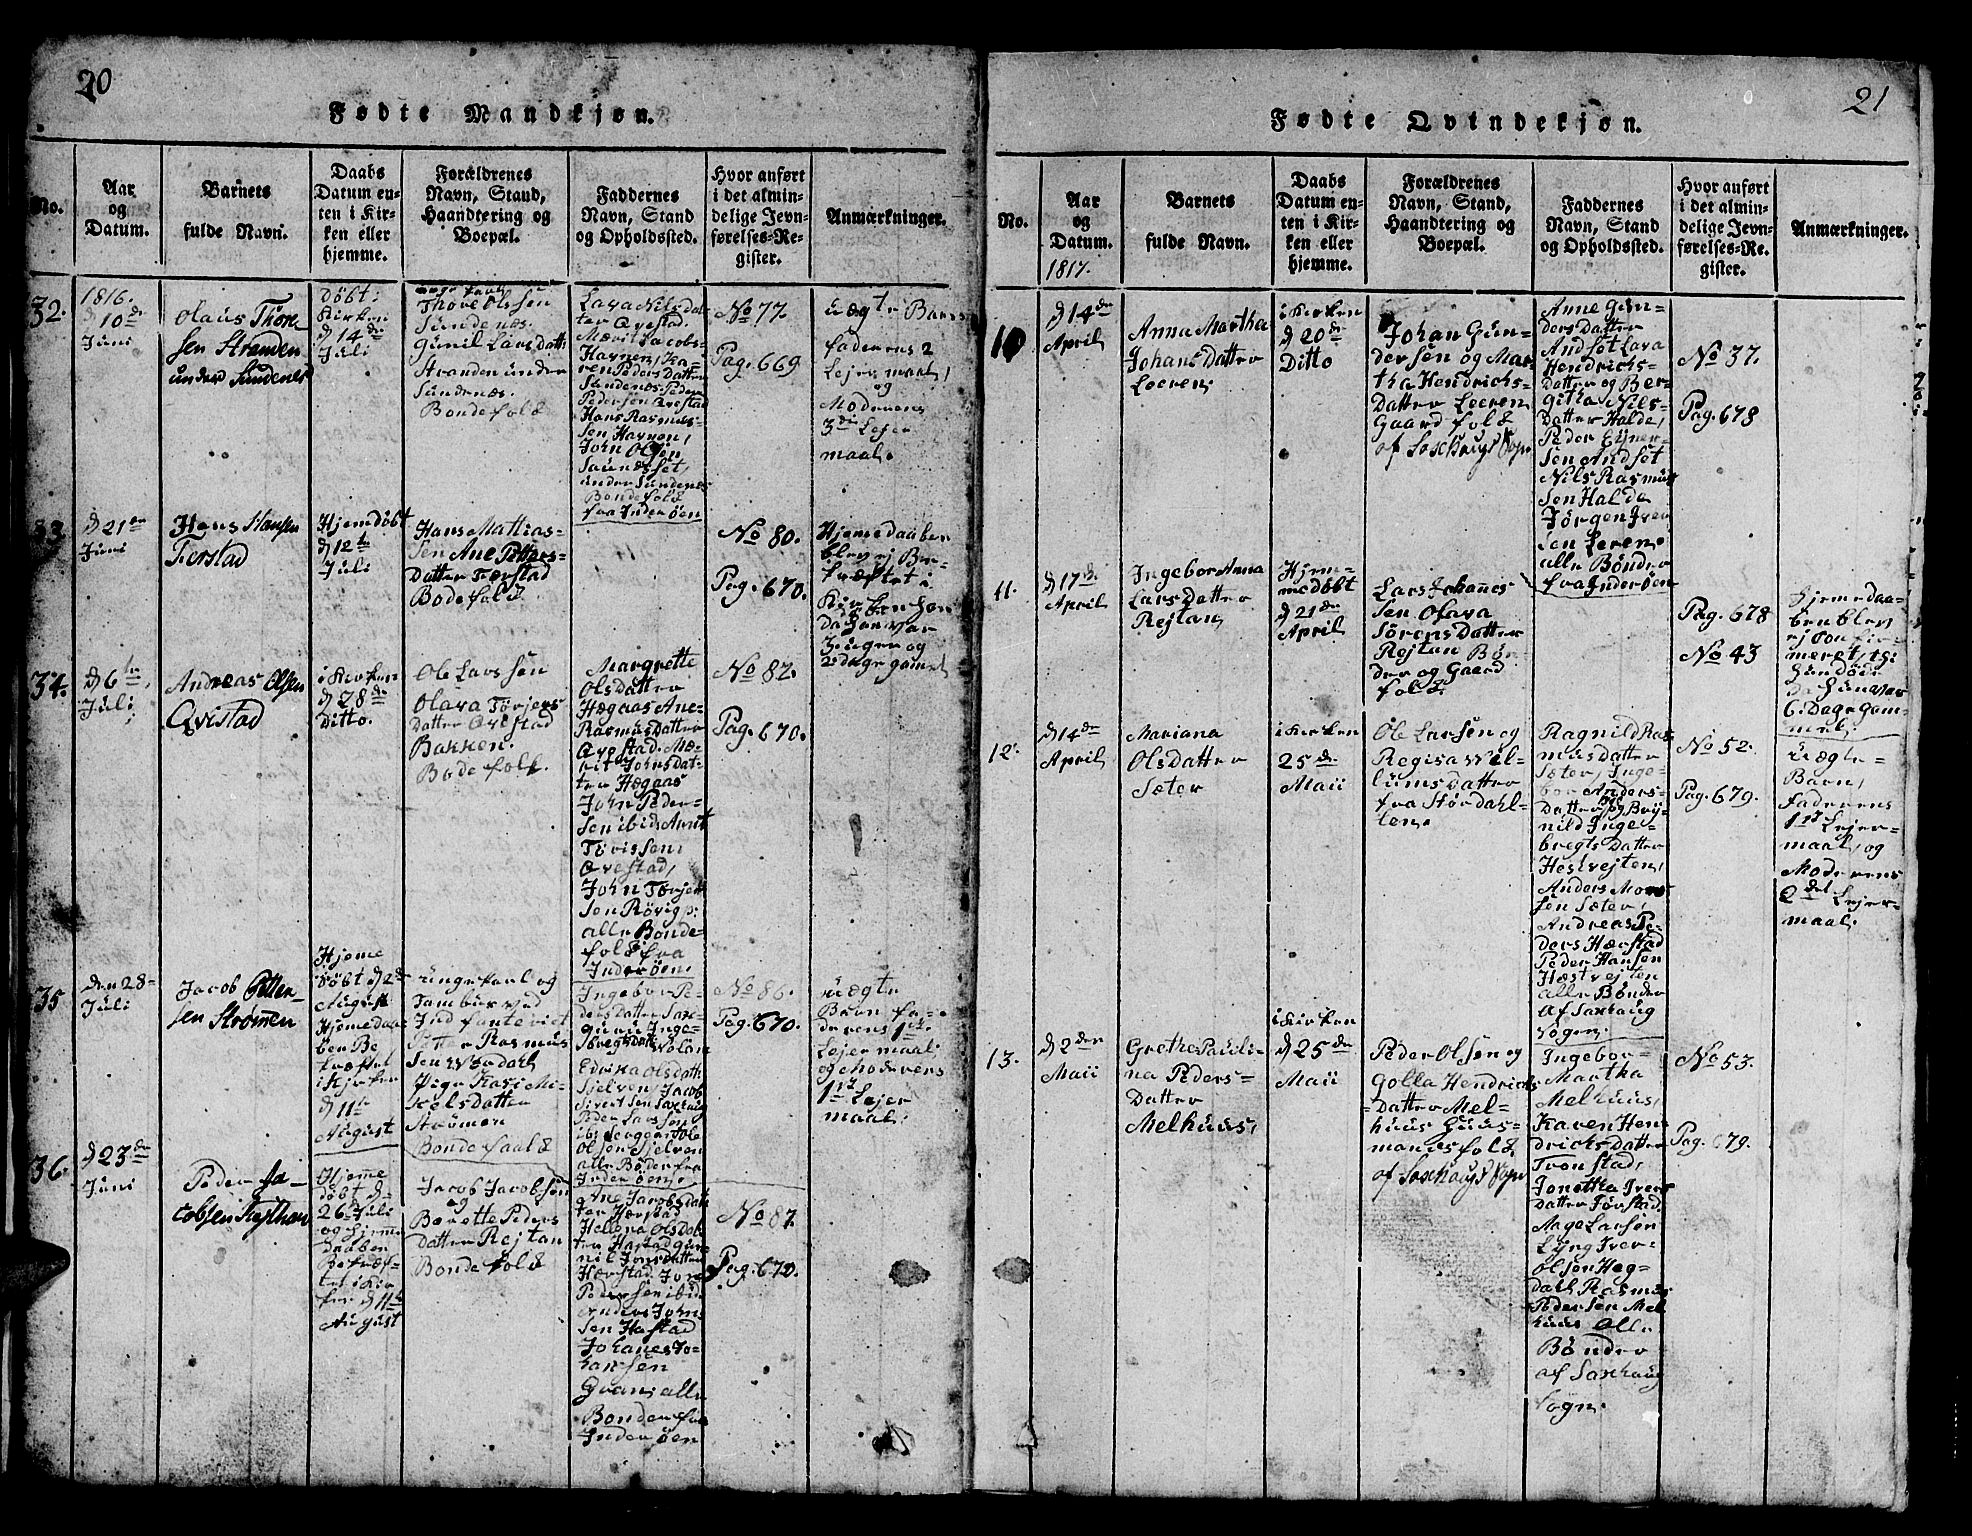 20
Fødte Mandkjøn.
No.
Aar
og
Datum.
Barnets
fulde Navn.
Daabs
Datum en-
ten i Kir-
ken eller
hjemme.
Forældrenes
Navn, Stand,
Haandtering og
Boepæl.
Faddernes
Navn, Stand
og Opholdssted.
Hvor anført
i det almin-
delige Jevn-
førelses-Re-
gister.
Anmærkninger.
32.
1816.
d 10de
Juni
Olaus Thore-
sen Stranden
under Sundenes
Døbt i
Kirken
d 14de
Juli
Thore Olssen
Sundenæs.
Gunil Larsdatt:
Stranden under
Sundenæs.
Bondefolk
Lava Nilsdat-
ter Qvestad.
Mærit Jacobs-
Havnen, Ka-
ren PedersDatter
Sundenæs Peder
Pedersen Qvestad
Hans Rasmus-
sen Havnen,
John Olsen
Saunesset,
under Sundenes
Bondefolk
fra Inderøen
No 77.
Pag. 669
uægte Barn
faderens 2
Lejermaal,
og
Moderens
3de Lejer
maal.
33.
d 21de
Juni
Hans Hansen
Tierstad
Hjemdøbt
d 12te
Juli
Hans Mathias-
sen Ane Petters-
Datter Tierstad
Bodefolk
No 80.
Pag. 670.
Hjemedaaben
blev ej Be-
kræftet i
Kirken han
da han var
3 uger og
2 dage gamel
34.
d 6te
Juli
Andreas Olsen
Qvistad
i Kirken
d 28de
Ditto.
Ole Larssen
Olava Törjers
datter Qvestad
Bakken.
Bodefolk.
Margrette
Olsdatter
Hægaas Ane-
RasmusDatter
Qvestad. Mæ-
rit Johnsdat-
ter Hægaas
John Peder-
sen ibid: Arnt
Törissen,
Qvestad,
John Törjer
sen Rövig p:
alle Bonde-
folk fra
Inderøen.
No 82.
Pag. 670.
35
den 28-
Juli
Jacob Petter-
sen Strömen
Hjeme
døbt d 2de
August
Hjemedaa-
ben Be
kræftet
i Kjerken
d 11te
August
Ungekarl og
Tambur ved
Infanteriet
Petter Rasmus
sen Værdahl
Pige Kari Mi-
kelsdatter
Strömen
Bondefaalk
Ingebor Pe-
dersDatter Sax-
Inge-
bregtsdatt: Wolan
Edvika Olsdatt:
Sjelven, Jacob
Sivertsen Saxhaug
Peder Larssen
Ole
Olssen Sjelven
alle Bönder fra
Inderøen.
No 86.
Pag. 670.
uægte
Barn fa-
derens 1ste
Lejermaal
og Moderens
1ste Lejer
maal.
36.
d 23de
Juni
Peder Ja-
cobsen Rejthan
Hjeme
døbt d-
26de Juli
og hjemme
daaben
Bekræf-
tet i Kir
ken d 11te
August
Jacob Jacobsen
og
Berette Peders
datter Rejtan
Bondefolk
Ane Jacobsdat
ter Hærstad
Hellena Olsdat
ter Hastad Gun-
nil Jonsdatter
Hærstad. Jon
Pedersen ibid
Anders John
sen Hastad
Johanes Jo-
hansen
Gran, alle
Bønder fra
Inderøen
No 87.
Pag. 670.
21
Fødte Qvindekjøn.
No.
Aar
og
Datum.
1817.
Barnets
fulde Navn.
Daabs
Datum en-
ten i Kir-
ken eller
hjemme.
Forældrenes
Navn, Stand,
Haandtering og
Boepæl.
Faddernes
Navn, Stand
og Opholdssted.
Hvor anført
i det almin-
delige Jevn-
førelses-Re-
gister.
Anmærkninger.
10
d 14de
April
Anna Martha
JohansDatter
Leeren,
i Kirken
d 20de
Ditto
Johan Gun-
dersen og Mar-
tha Hendrichs-
Datter Leeren
Gaardfolk
af Saxhaugs Sogn
Anne Gun-
dersDatter
Andset Lava
Hendrichs-
Datter og Ber-
githa Nils-
Datter Halde,
Peder Ejner-
sen Andset
Nils Rasmus
sen Halde
Jørgen Iver
sen Leren.
alle Bønder
fra Inderøen
No 37.
Pag. 678
11.
d 17de
April
Ingebor Anna
LarsDatter
Rejtan,
Hjem-
medöbt
d 21de
April
Lars Johannes
sen Olava
SörensDatter
Rejtan Bön-
der og Gaard
folk
Pag. 678
No 43
Hjemedaa-
ben blev
ej confir-
meret, thi
hun døde
da hun var
6 Dage gam-
mel.
12.
d 14de
April
Mariana
OlsDatter
Sæter
i Kirken
25de
Maii
Ole Larsen og
Regisa Wil-
lumsdatter
fra Størdahl-
ten.
Ragnild Ras
musdatter
Sæter, Inge-
bor Anders-
Datter og Bryn-
nild Inge-
bregtsDatter
Hestvejten,
Anders Mor-
sen Sæter,
Andreas Pe-
ders Hærstad
Peder Hansen
Hæstvejten
alle Bönder
af Saxhaug
Sogen.
No 52.
Pag. 679.
uægte
Barn,
faderens
1ste Lejer-
maal, og
Moderens
2det Lejer-
maal.
13.
d 2den
Maii
Grethe Pauli-
na Peders-
Datter
Melhuus,
i Kirken
d 25de
Maii
Peder Olsen og
Golla Hendrichs-
Datter Mel-
huus Huus-
mandsfolk
af Saxhaugs Sogn
Ingebor-
Martha
Melhuus,
Karen Hen
dricksDatter
Tronstad,
Jonetha Ivers
datter Törstad
Aage Larsen
Lyng Iver-
Olsen Hæg-
dahl Rasmus
Pedersen Mel
huus Alle
Bønder
af Saxhaug
Sogn.
No 53.
Pag. 679.